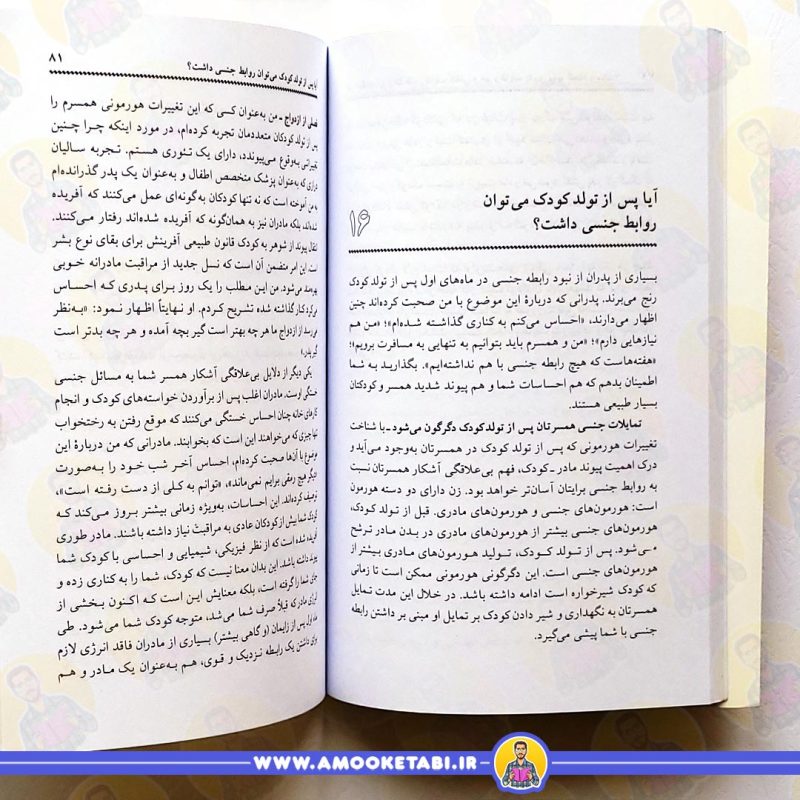 آیا پس از تولد کودک می‌توان
روابط جنسی داشت؟
۱۶
بسیاری از پدران از نبود رابطه جنسی در ماه‌های اول پس از تولد کودک
رنج می‌برند. پدرانی که درباره این موضوع با من صحبت کرده‌اند چنین
اظهار می‌دارند، «احساس می‌کنم به کناری گذاشته شده‌ام»؛ «من هم
نیازهایی دارم»؛ «من و همسرم باید بتوانیم به تنهایی به مسافرت برویم»؛
«هفته‌هاست که هیچ رابطه جنسی با هم نداشته‌ایم». بگذارید به شما
اطمینان بدهم که هم احساسات شما و هم پیوند شدید همسر و کودکتان
بسیار طبیعی هستند.
تمایلات جنسی همسرتان پس از تولد کودک دگرگون می‌شود ـ با شناخت
تغییرات هورمونی که پس از تولد کودک در همسرتان به‌وجود می‌آید و
درک اهمیت پیوند مادر ـ کودک، فهم بی‌علاقگی آشکار همسرتان نسبت
به روابط جنسی برایتان آسان‌تر خواهد بود. زن دارای دو دسته هورمون
است: هورمون‌های جنسی و هورمون‌های مادری. قبل از تولد کودک،
هورمون‌های جنسی بیشتر از هورمون‌های مادری در بدن مادر ترشح
می‌شود. پس از تولد کودک، تولید هورمون‌های مادری بیشتر از
هورمون‌های جنسی است. این دگرگونی هورمونی ممکن است تا زمانی
که کودک شیرخواره است ادامه داشته باشد. در خلال این مدت تمایل
همسرتان به نگهداری و شیر دادن کودک بر تمایل او مبنی بر داشتن رابطه
جنسی با شما پیشی می‌گیرد.
آیا پس از تولد کودک می‌توان روابط جنسی داشت؟ ۸۱
فصلی از ازدواج ـ من به‌عنوان کسی که این تغییرات هورمونی همسرم را
پس از تولد کودکان متعددمان تجربه کرده‌ام، در مورد اینکه چرا چنین
تغییراتی به‌وقوع می‌پیوندد، دارای یک تئوری هستم. تجربه سالیان
درازی که به‌عنوان پزشک متخصص اطفال و به‌عنوان یک پدر گذرانده‌ام
به من آموخته است که نه تنها کودکان به‌گونه‌ای عمل می‌کنند که آفریده
شده‌اند، بلکه مادران نیز به همان‌گونه که آفریده شده‌اند رفتار می‌کنند.
انتقال پیوند از شوهر به کودک قانون طبیعی آفرینش برای بقای نوع بشر
است. این امر متضمن آن است که نسل جدید از مراقبت مادرانه خوبی
بهره‌مند می‌شود. من این مطلب را یک روز برای پدری که احساس
می‌کرد کنار گذاشته شده تشریح کردم. او نهایتاً اظهار نمود: «به‌نظر
می‌رسد از ازدواج ما هر چه بهتر است گیر بچه آمده و هر چه بدتر است
گیر پدر.»
یکی دیگر از دلایل بی‌علاقگی آشکار همسر شما به مسائل جنسی
خستگی اوست. مادران اغلب پس از برآوردن خواسته‌های کودک و انجام
کارهای خانه چنان احساس خستگی می‌کنند که موقع رفتن به رختخواب
تنها چیزی که می‌خواهند این است که بخوابند. مادرانی که من درباره این
موضوع با آن‌ها صحبت کرده‌ام، احساس آخر شب خود را به‌صورت
«دیگر هیچ رمقی برایم نمی‌ماند»، «توانم به کلی از دست رفته است»،
توصیف کرده‌اند. این احساسات، به‌ویژه زمانی بیشتر بروز می‌کند که
کودک شما بیش از کودکان عادی به مراقبت نیاز داشته باشند. مادر طوری
آفریده شده است که از نظر فیزیکی، شیمیایی و احساسی با کودک شما
پیوند داشته باشد. این بدان معنا نیست که کودک، شما را به کناری زده و
جای شما را گرفته است، بلکه معنایش این است که اکنون بخشی از
انرژی مادر که قبلاً صرف شما می‌شد، متوجه کودک شما می‌شود. طی
ماه اول پس از زایمان (و گاهی بیشتر) بسیاری از مادران فاقد انرژی لازم
برای داشتن یک رابطه نزدیک و قوی، هم به‌عنوان یک مادر و هم
WWW.AMOOKETABI.IR